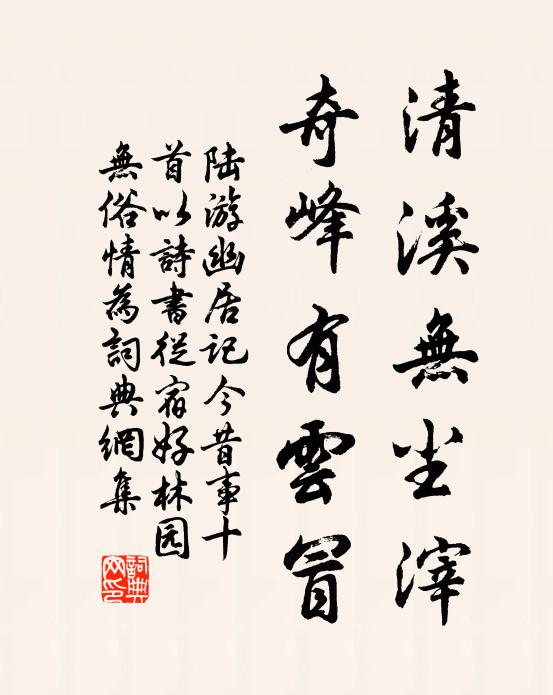 清溪無尘滓
奇峰有雲冒
陆游幽居記今昔事十
首以詩書從宿好林园
無俗情為詞典網集
詞典
网印